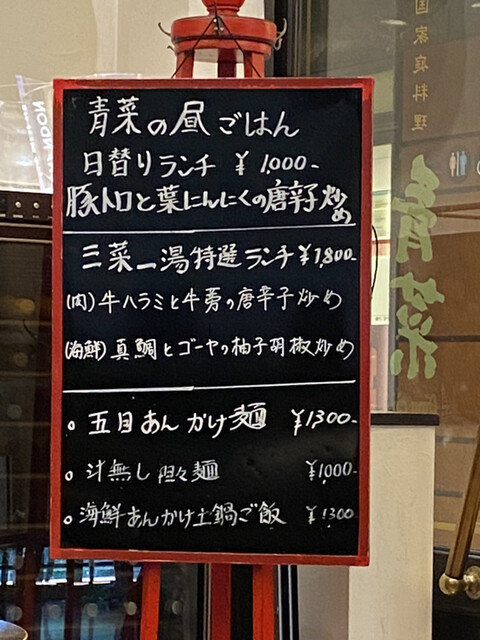 青菜の昼ごはん
日替りランチ ¥1,000-
豚トロと葉にんにくの唐辛子炒め
三菜一湯特選ランチ ¥1,800-
(肉)牛ハラミと牛蒡の唐辛子炒め
(海鮮)真鯛とゴーヤの柚子胡椒炒め
。五目あんかけ麺 ¥1300-
。汁無し担々麺 ¥1,000-
。海鮮あんかけ土鍋ご飯 ¥1300-
国家庭料理
青菜